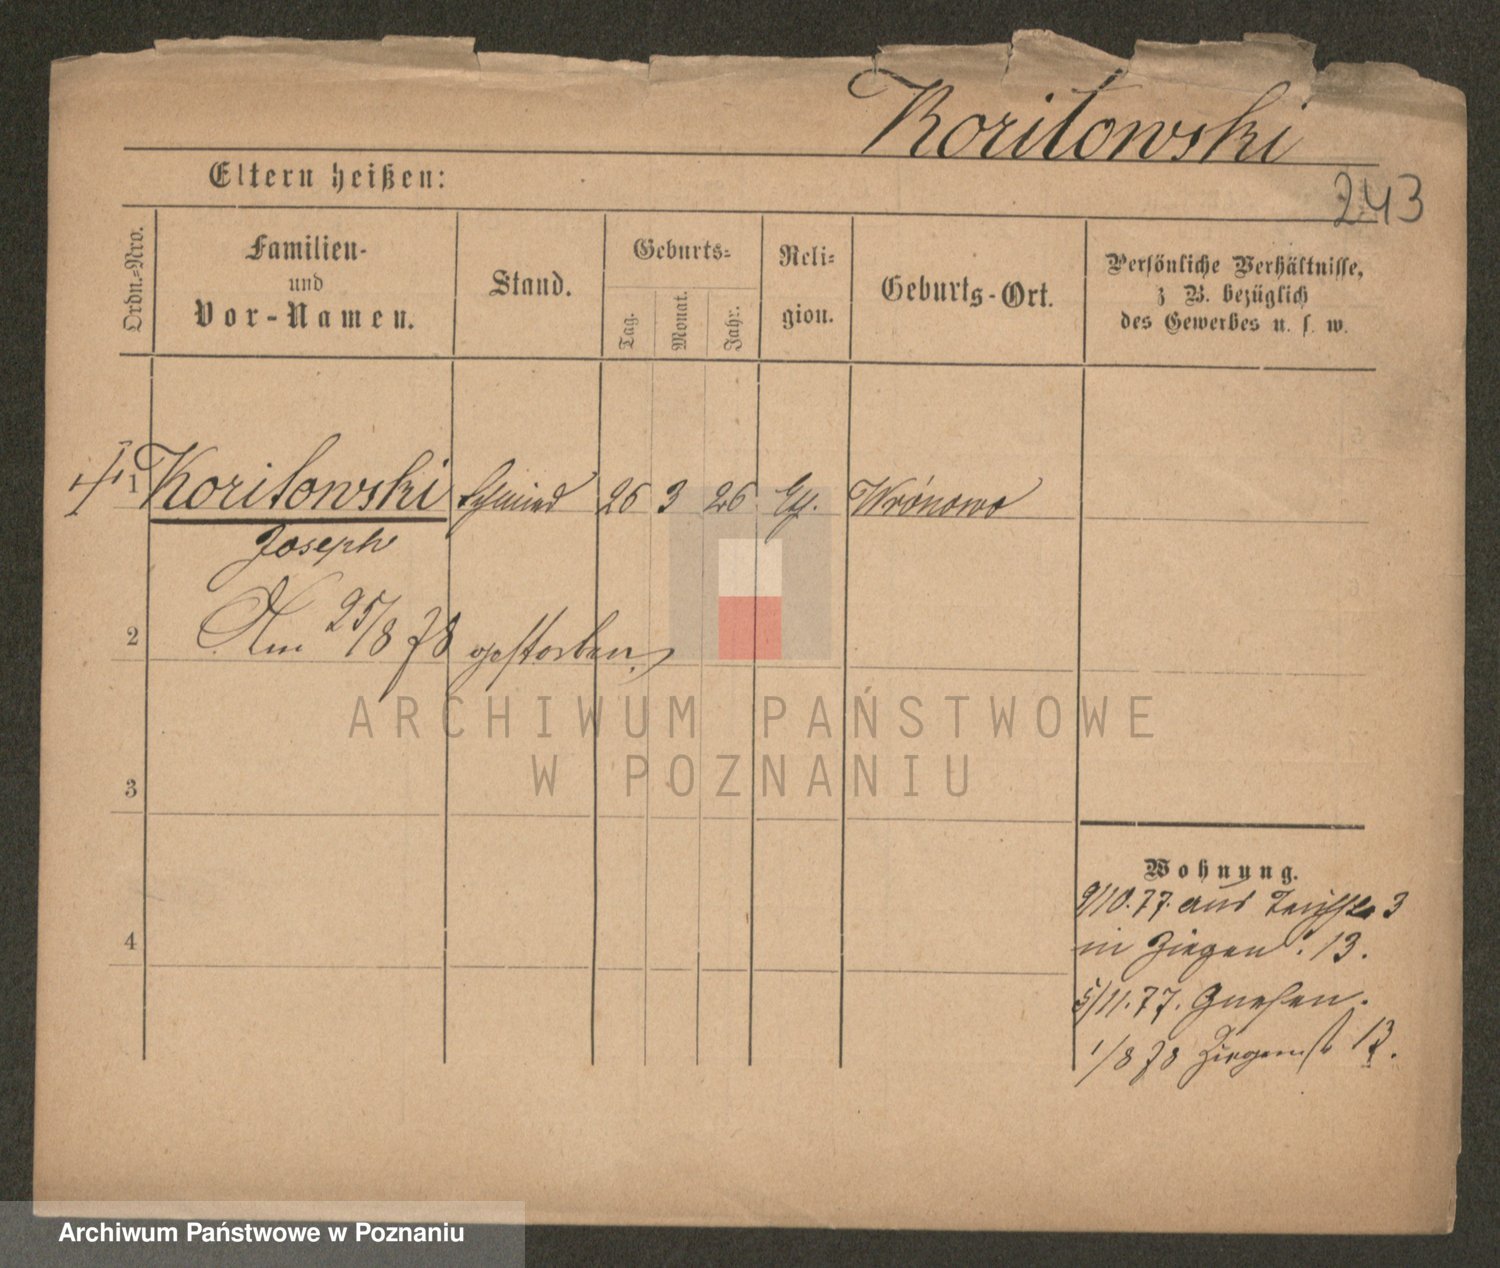 Koritowski
Eltern heißen:
243
Ordn.=Nro.
Familien-
und
Vor-Namen.
Stand.
Geburts=
Tag.
Monat.
Jahr.
Reli=
gion.
Geburts-Ort.
Persönliche Verhältnisse,
z B. bezüglich
des Gewerbes u. s. w.
1 Koritowski Schmied 26 3 26 Wrónowo
Joseph
2 Am 25/8 78 gestorben.
ARCHIWUM PAŃSTWOWE
W POZNANIU
3
4
Wohnung.
9/10.77. aus 3
in Ziegen. 13.
5/11.77. Gnesen.
1/8 78 Ziegenst 13.
Archiwum Państwowe w Poznaniu